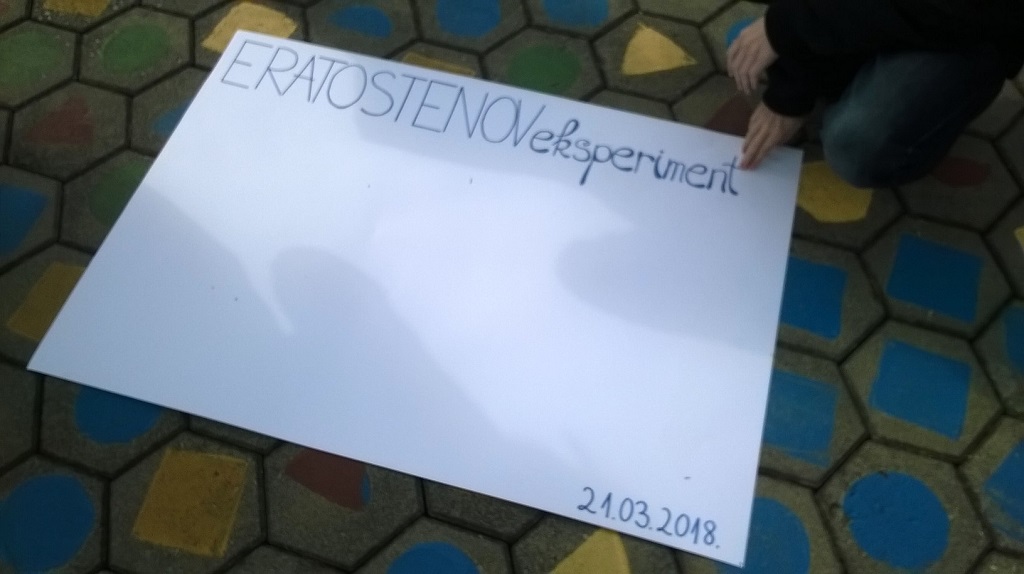 ERATOSTENOV eksperiment
21.03.2018.